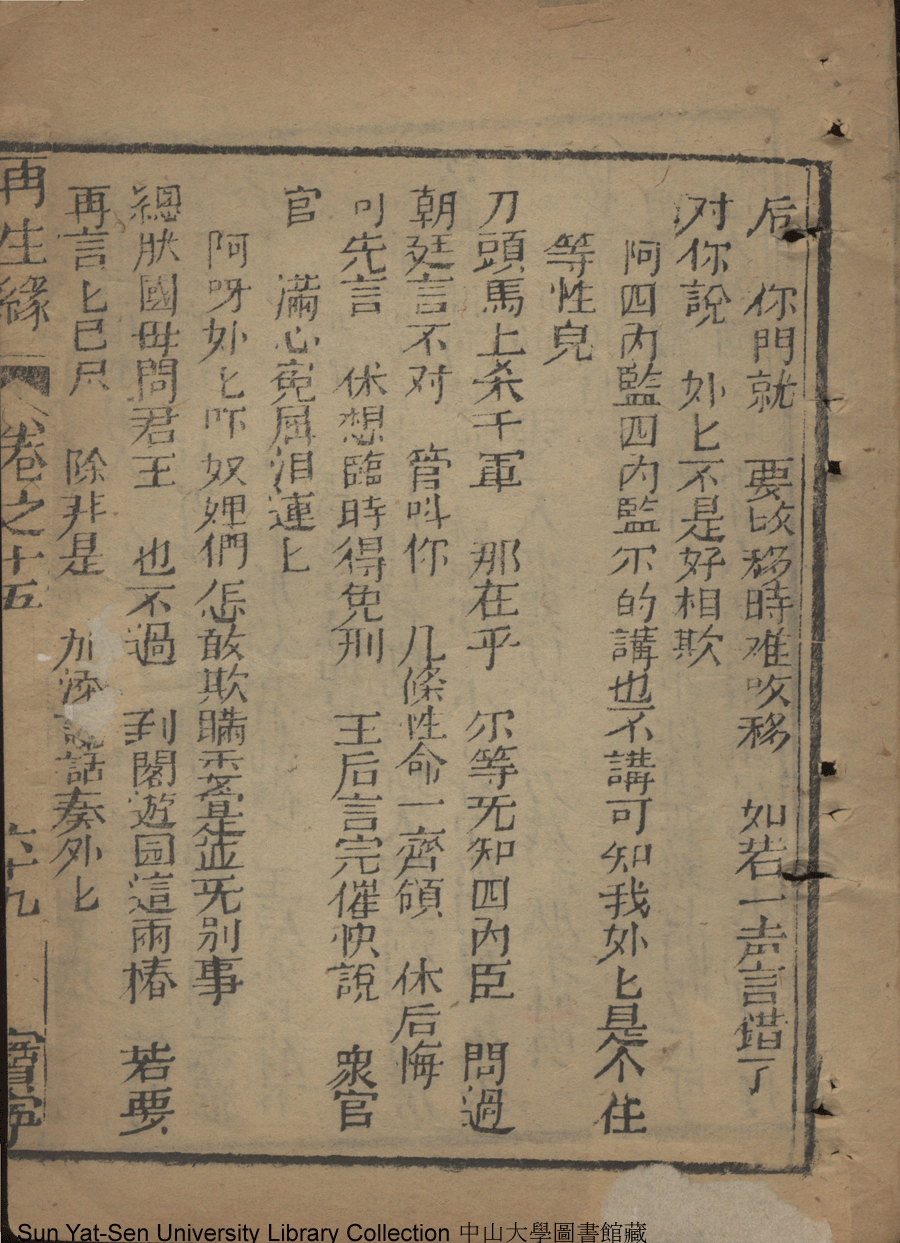 后 你門就 要改移時难改移 如若一声言錯了
对你說 外匕不是好相欺
阿四内監四内監尔的講也不講可知我外匕是个住
等性皃
刀頭馬上杀千軍 那在乎 尔等旡知四内臣 問過
朝廷言不对 管呌你 几條性命一齊頃 休后悔
可先言 休想臨時得免刑 王后言完催快說 衆官
官 滿心寃屈泪連匕
阿呀外匕吓奴娌們怎敢欺瞞 並旡别事
緫肰國母問君王 也不過 到閣遊园這兩樁 若要
再言匕已尽 除非是 加添說話奏外匕
再生緣 卷之十五 六十九
Sun Yat-Sen University Library Collection 中山大學圖書館藏